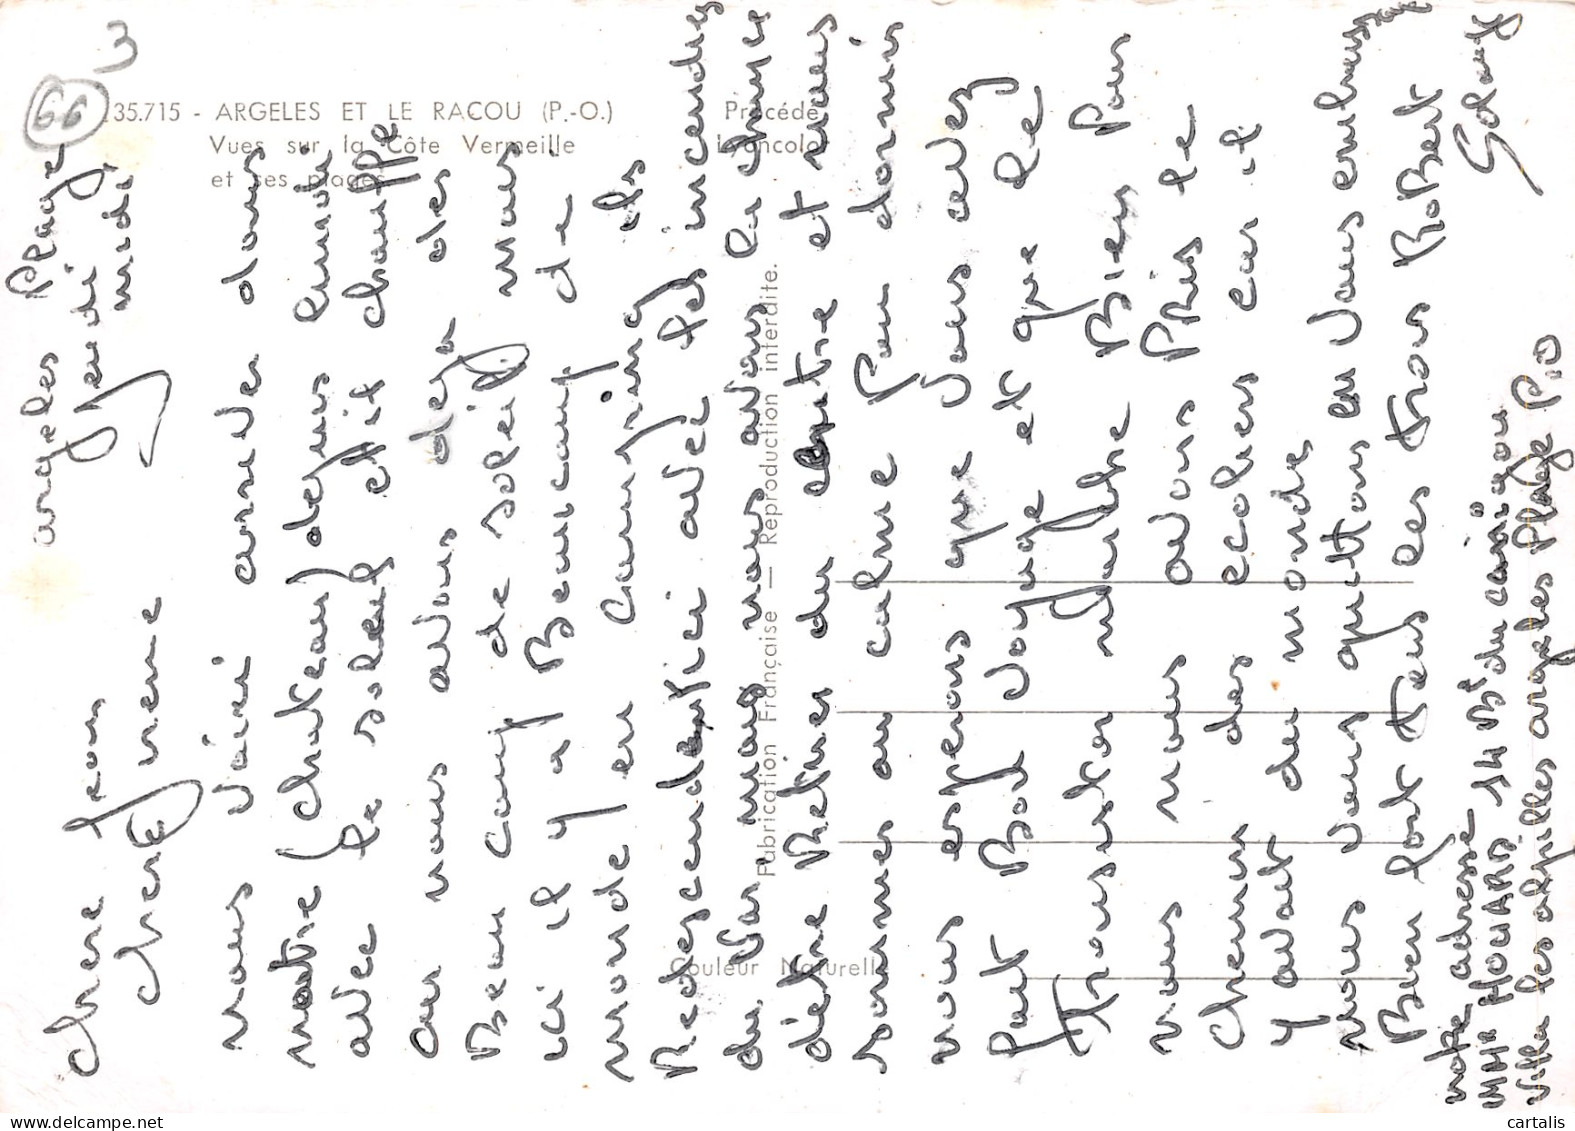 66
3
135.715 - ARGELES ET LE RACOU (P.-O.)
Vues sur la Côte Vermeille
et ses plages
Procédé
Lyoncolor
Fabrication Française — Reproduction interdite.
Couleur Naturelle
argeles Plage
Jeudi midi
chere
chere mene
nous voici arriver dans
notre (chateau) depuis lundi
avec le soleil et il chauffe
car nous avons deja des
Beau coup de soleil mais
ici il y a Beaucoup de
monde en Camping ils
Redescendent ici avec les incendies
du Var mais nous avons la chance
d'être Retirer du centre et nous
sommes au calme pour dormir
nous esperons que vous avez
fait Bon voyage et que le
nous nous avons Pris le
Chemin des ecoliers car il
y avait du monde
nous vous quittons en vous embrassant
Bien fort tous les trois Robert
Solange
notre adresse
MMe HOUARD 14 Bd du canigou
Villa les alpilles argeles Plage P.O
cartalis.com